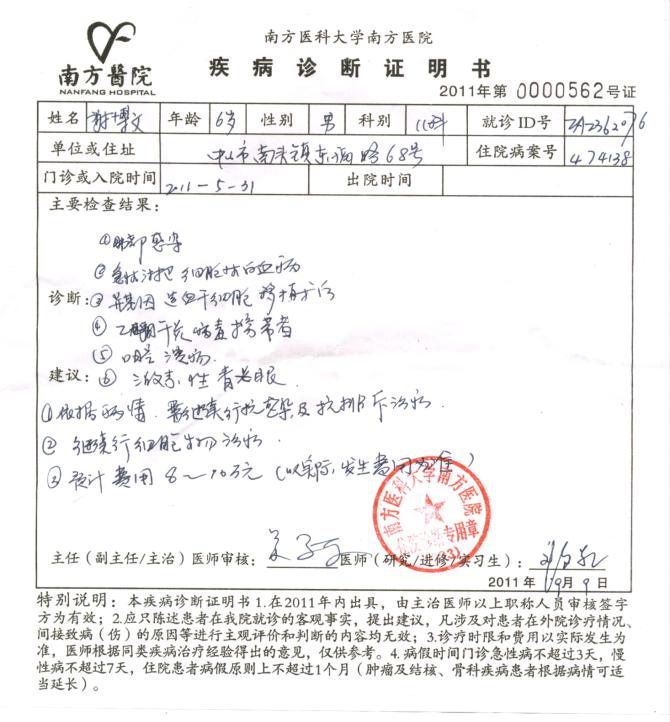 南方醫院
NANFANG HOSPITAL
南方医科大学南方医院
疾病诊断证明书
2011年第0000562号证
姓名 谢博文 年龄 6岁 性别 男 科别 儿科 就诊ID号
单位或住址 中山市南头镇东福路68号 住院病案号 474138
门诊或入院时间 2011-5-31 出院时间
主要检查结果：
①肺部感染
②急性淋巴细胞性白血病
诊断：③异基因造血干细胞移植术后
④乙型肝炎病毒携带者
⑤口腔溃疡
建议：⑥激素性青光眼
①依据病情，需继续行抗感染及抗排斥治疗。
②继续行细胞生物治疗。
③预计费用8～10万元（以实际发生费用为准）
南方医科大学南方医院
专用章
(3)
主任（副主任/主治）医师审核： 医师（研究/进修/实习生）：
2011年9月9日
特别说明：本疾病诊断证明书1.在2011年内出具，由主治医师以上职称人员审核签字
方为有效；2.应只陈述患者在我院就诊的客观事实，提出建议，凡涉及对患者在外院诊疗情况、
间接致病（伤）的原因等进行主观评价和判断的内容均无效；3.诊疗时限和费用以实际发生为
准，医师根据同类疾病治疗经验得出的意见，仅供参考。4.病假时间门诊急性病不超过3天，慢
性病不超过7天，住院患者病假原则上不超过1个月（肿瘤及结核、骨科疾病患者根据病情可适
当延长）。